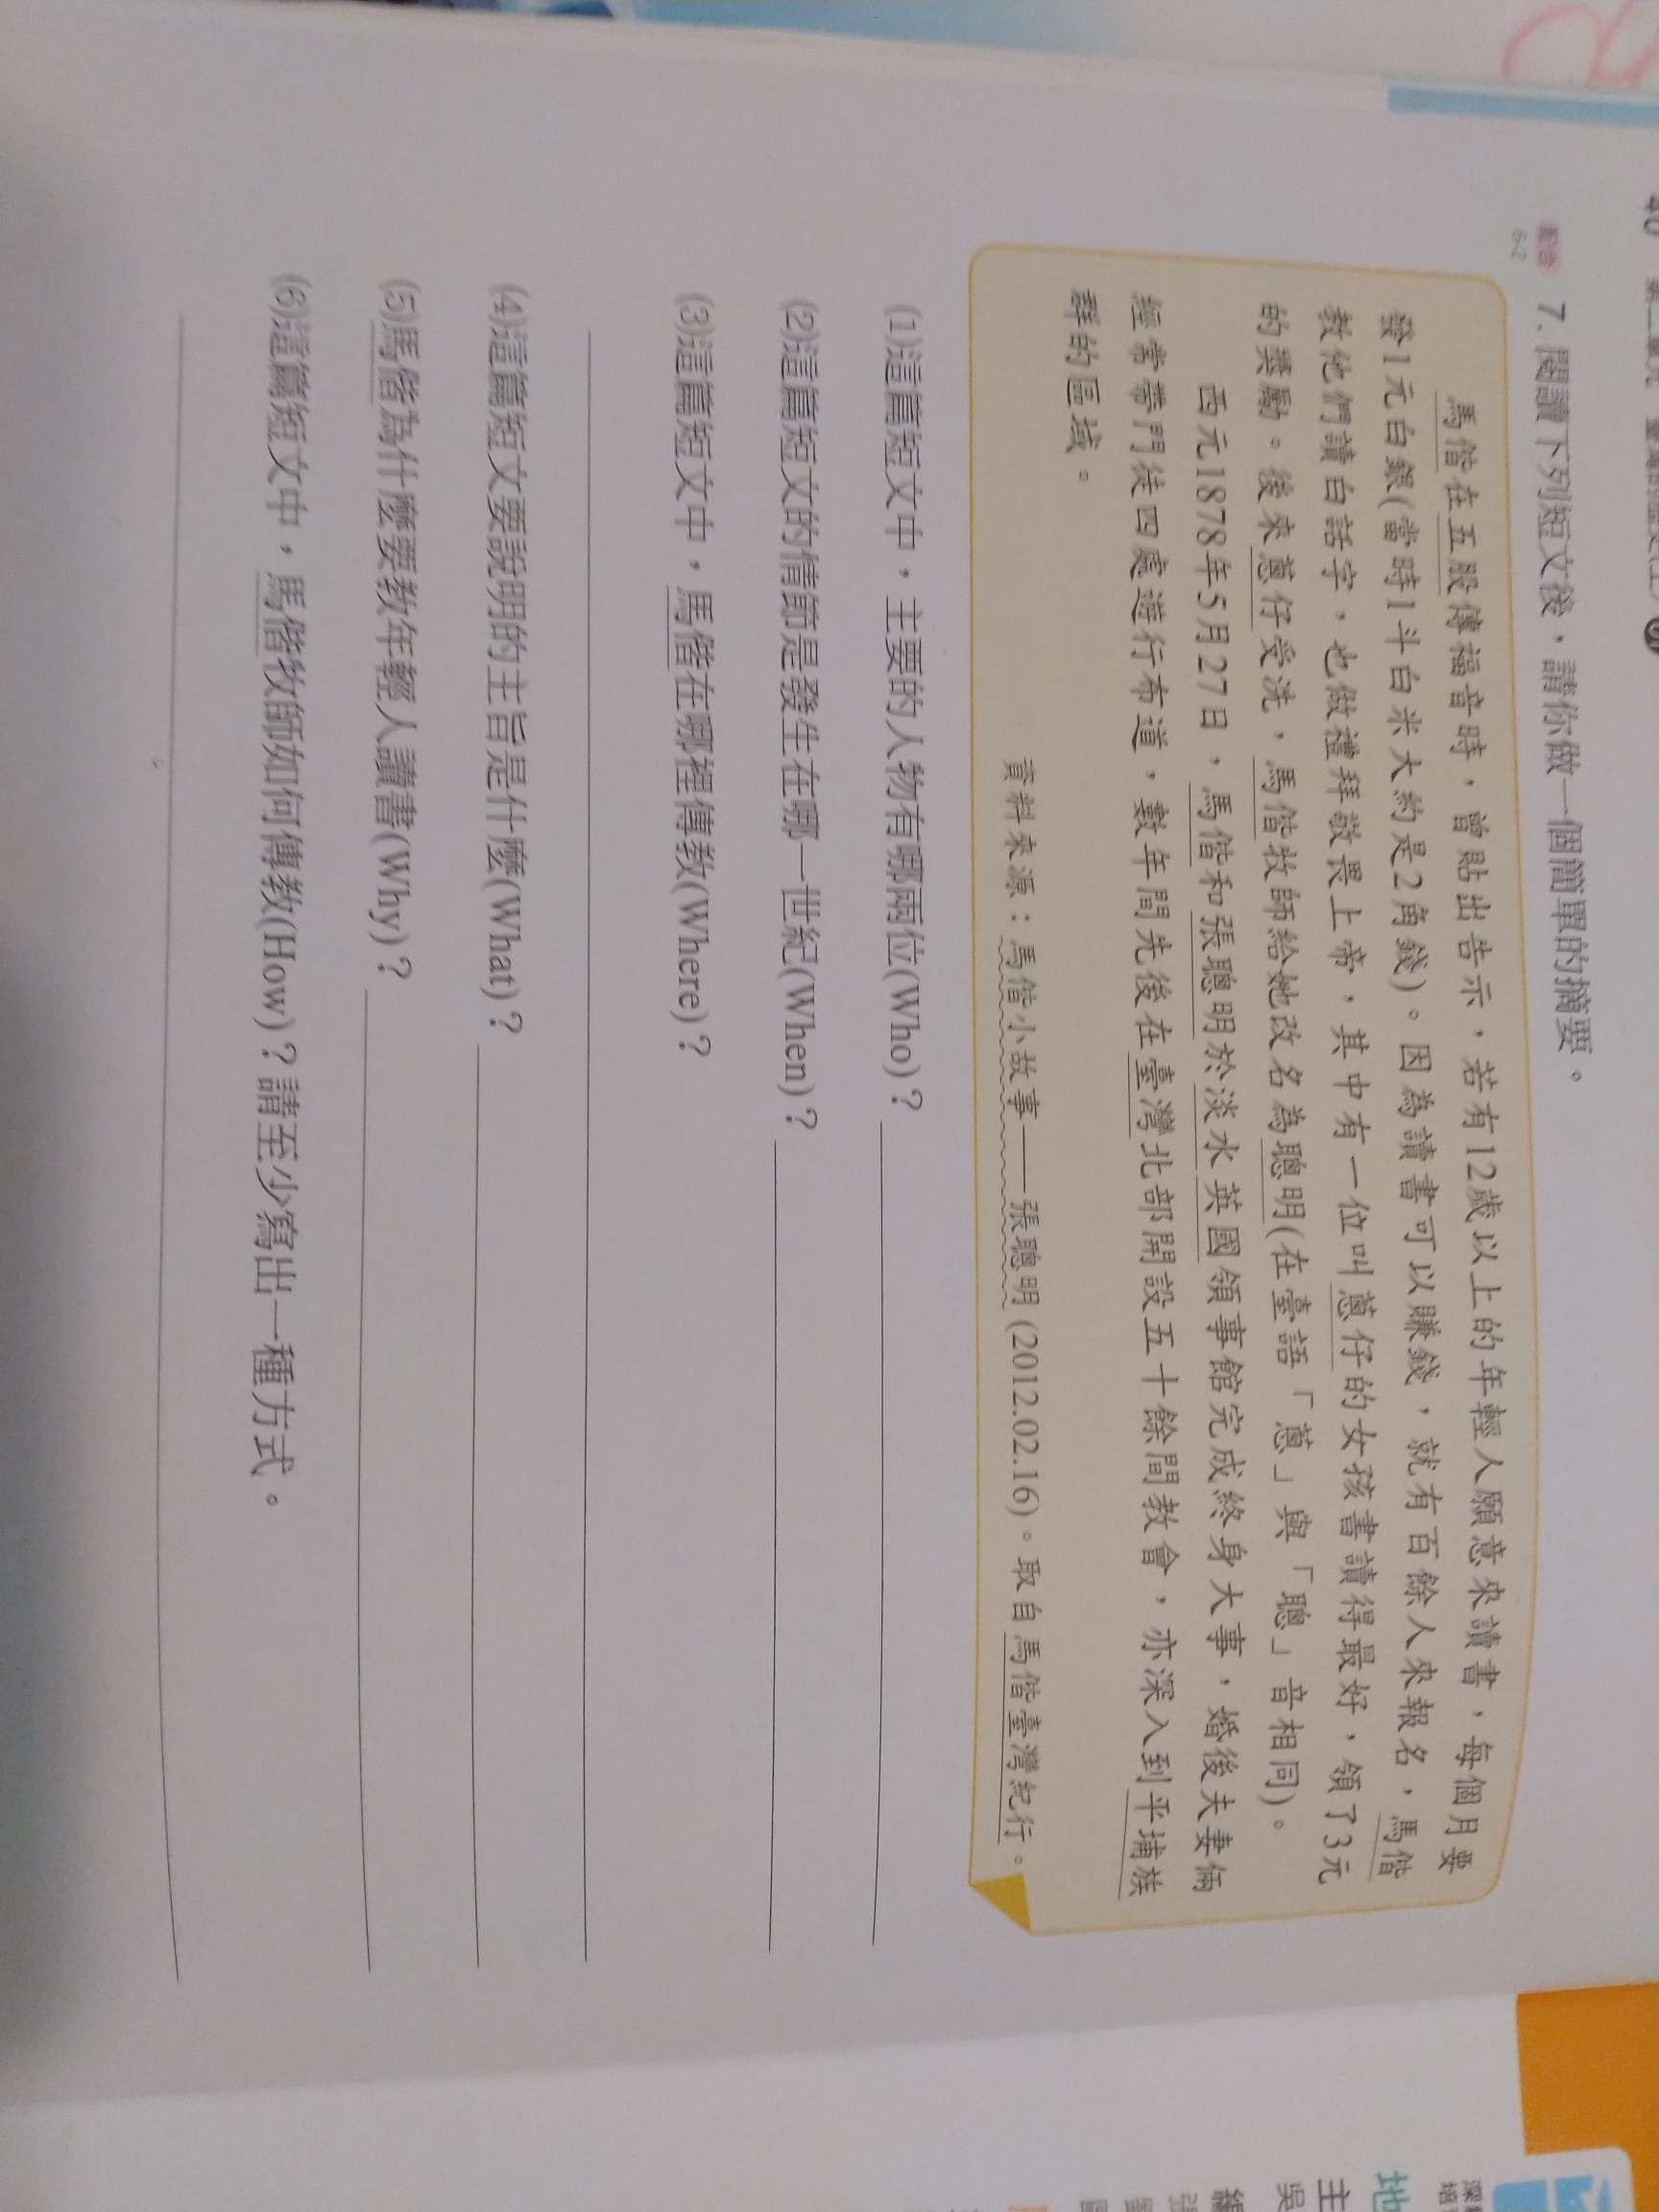 40 第二單元
配合
6-2
7. 閱讀下列短文後，請你做一個簡單的摘要。
馬偕在五股傳福音時，曾貼出告示，若有12歲以上的年輕人願意來讀書，每個月要
發1元白銀(當時1斗白米大約是2角錢)。因為讀書可以賺錢，就有百餘人來報名，馬偕
教他們讀白話字，也做禮拜敬畏上帝，其中有一位叫蔥仔的女孩書讀得最好，領了3元
的獎勵。後來蔥仔受洗，馬偕牧師給她改名為聰明(在臺語「蔥」與「聰」音相同)。
西元1878年5月27日，馬偕和張聰明於淡水英國領事館完成終身大事，婚後夫妻倆
經常帶門徒四處進行布道，數年間先後在臺灣北部開設五十餘間教會，亦深入到平埔族
群的區域。
資料來源：馬偕小故事——張聰明 (2012.02.16)。取自馬偕臺灣紀行。
(1)這篇短文中，主要的人物有哪兩位(Who)？
(2)這篇短文的情節是發生在哪一世紀(When)？
(3)這篇短文中，馬偕在哪裡傳教(Where)？
(4)這篇短文要說明的主旨是什麼(What)？
(5)馬偕為什麼要教年輕人讀書(Why)？
(6)這篇短文中，馬偕牧師如何傳教(How)？請至少寫出一種方式。
地
主
吳